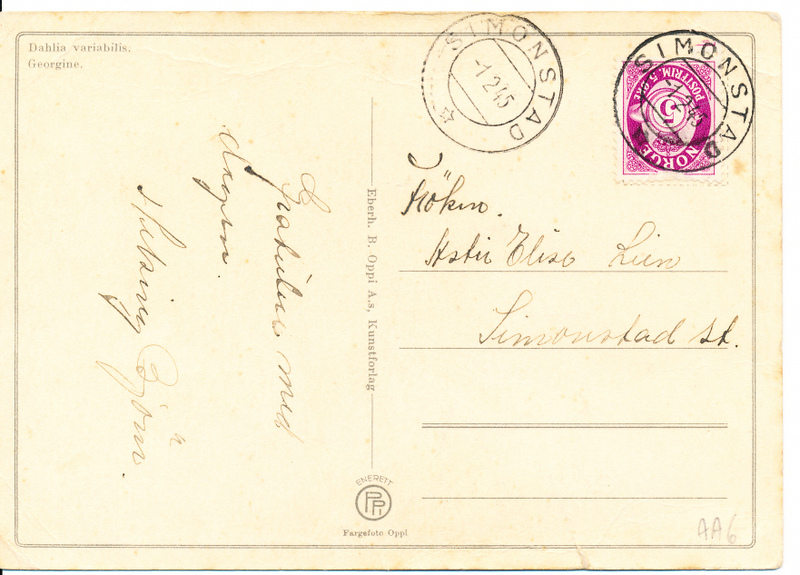 Dahlia variabilis.
Georgine.
SIMONSTAD
-1 2 45
SIMONSTAD
-1 2 45
POSTFRIM. 5 ØRE
5
NORGE
Frøken.
Astri Elise Lien
Simonstad st.
Gratulerer med
dagen.
Hilsing
Bjørn.
Eberh. B. Oppi A.s, Kunstforlag
ENERETT
Fargefoto Oppi
AA6